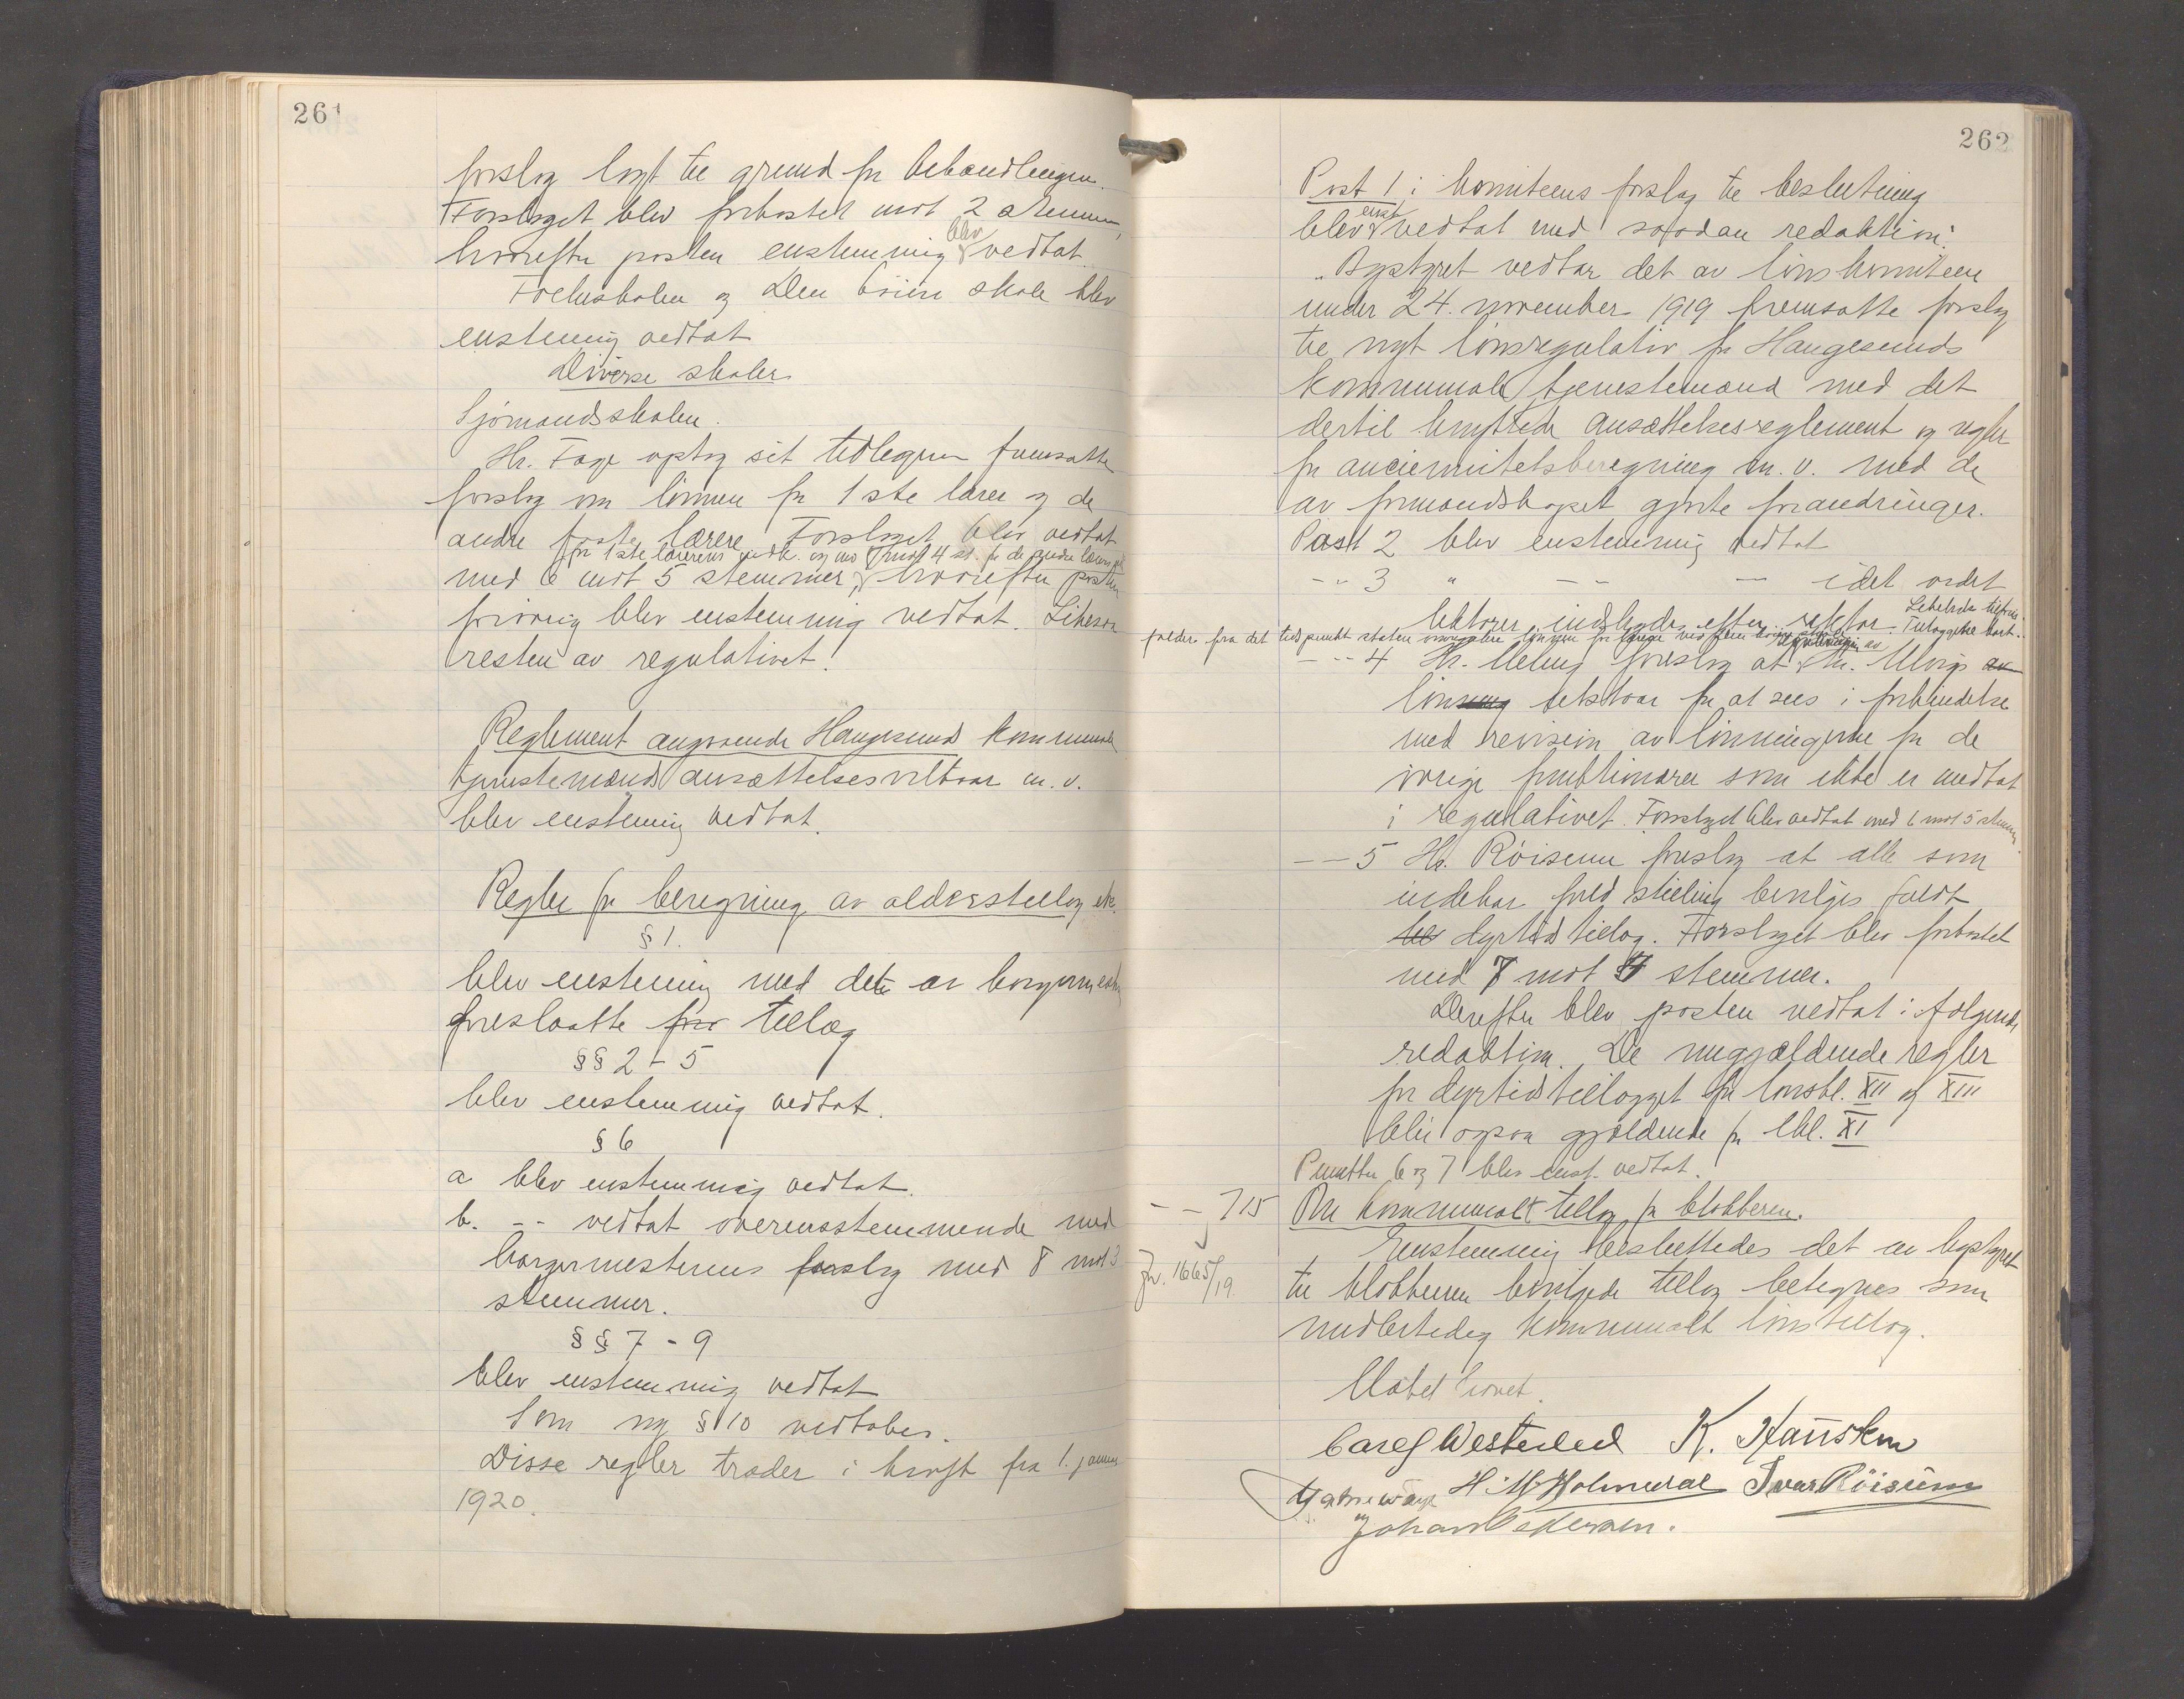 261
forslag lagt til grund for behandlingen.
Forslaget blev forkastet mot 2 stemmer,
hvorefter posten enstemmig blev vedtat.
Folkeskolen og Den höiere skole blev
enstemmig vedtat
Diverse skoler
Sjömandsskolen.
Hr. Fage optog sit tidligere fremsatte
forslag om lönnen for 1ste lærer og de
andre faste lærere. Forslaget blev vedtat
for 1ste lærerens vedk. og mot 4 st. for de andre lærere
med 6 mot 5 stemmer, hvorefter posten
forövrig blev enstemmig vedtat. Likesaa
resten av regulativet.
Reglement angaaende Haugesunds kommunale
tjenestemænds ansættelsesvilkaar m.v.
blev enstemmig vedtat.
Regler for beregning av alderstillæg etc.
§ 1.
blev enstemmig med det av borgermester
foreslaatte tillæg
§§ 2 - 5
blev enstemmig vedtat.
§ 6
a blev enstemmig vedtat.
b. - - vedtat overensstemmende med
borgermesterens forslag med 8 mot 3
stemmer.
§§ 7 - 9
blev enstemmig vedtat
Som ny § 10 vedtokes.
Disse regler træder i kraft fra 1. januar
1920.
262
Post 1 i komiteens forslag til beslutning
blev enst. vedtat med saadan redaktion:
"Bystyret vedtar det av lönskomiteen
under 24. november 1919 fremsatte forslag
til nyt lönsregulativ for Haugesunds
kommunale tjenestemænd med det
dertil knyttede ansættelsesreglement og regler
for anciennitetsberegning m.v. med de
av formandskapet gjorte forandringer.
Post 2 blev enstemmig vedtat
- - 3 " - - - idet ordet
lektorer indskydes efter rektor. Lekelunds tilföi.
falder fra det tidspunkt staten overtar lönnen for Tillægget bort.
- - 4 Hr. Meling foreslog at hr. Utviks
lön utstaar for at sees i forbindelse
med revision av lönningerne for de
övrige funktionærer som ikke er medtat
i regulativet. Forslaget blev vedtat med 6 mot 5 stemmer.
- - 5 Hr. Röisum foreslog at alle som
indehar fuld stilling bevilges fuldt
dyrtidstillæg. Forslaget blev forkastet
med 7 mot 4 stemmer.
Derefter blev posten vedtat i fölgende
redaktion. De nugjældende regler
for dyrtidstillægget for lönskl. XII og XIII
blir ogsaa gjældende for lkl. XI
Punkter 6 og 7 blev enst. vedtat.
- - 715 Det kommunale tillæg for klokkeren.
Jnr. 1665/19.
Enstemmig besluttedes det av bystyret
til klokkeren bevilgede tillæg betegnes som
midlertidig kommunalt lönstillæg.
Mötet hævet.
Carl J Westerlund K. Hausken
H. M. Holmedal Ivar Röisum
Johan Pedersen.